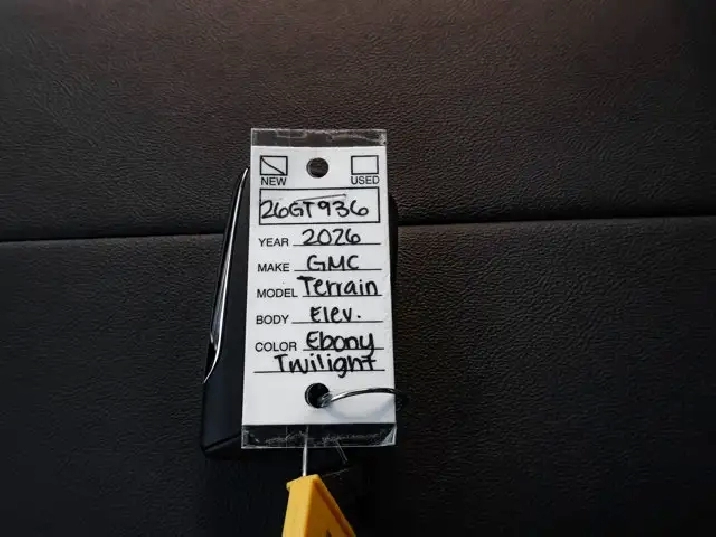 NEW USED
26GT936
YEAR 2026
MAKE GMC
MODEL Terrain
BODY Elev.
COLOR Ebony
Twilight